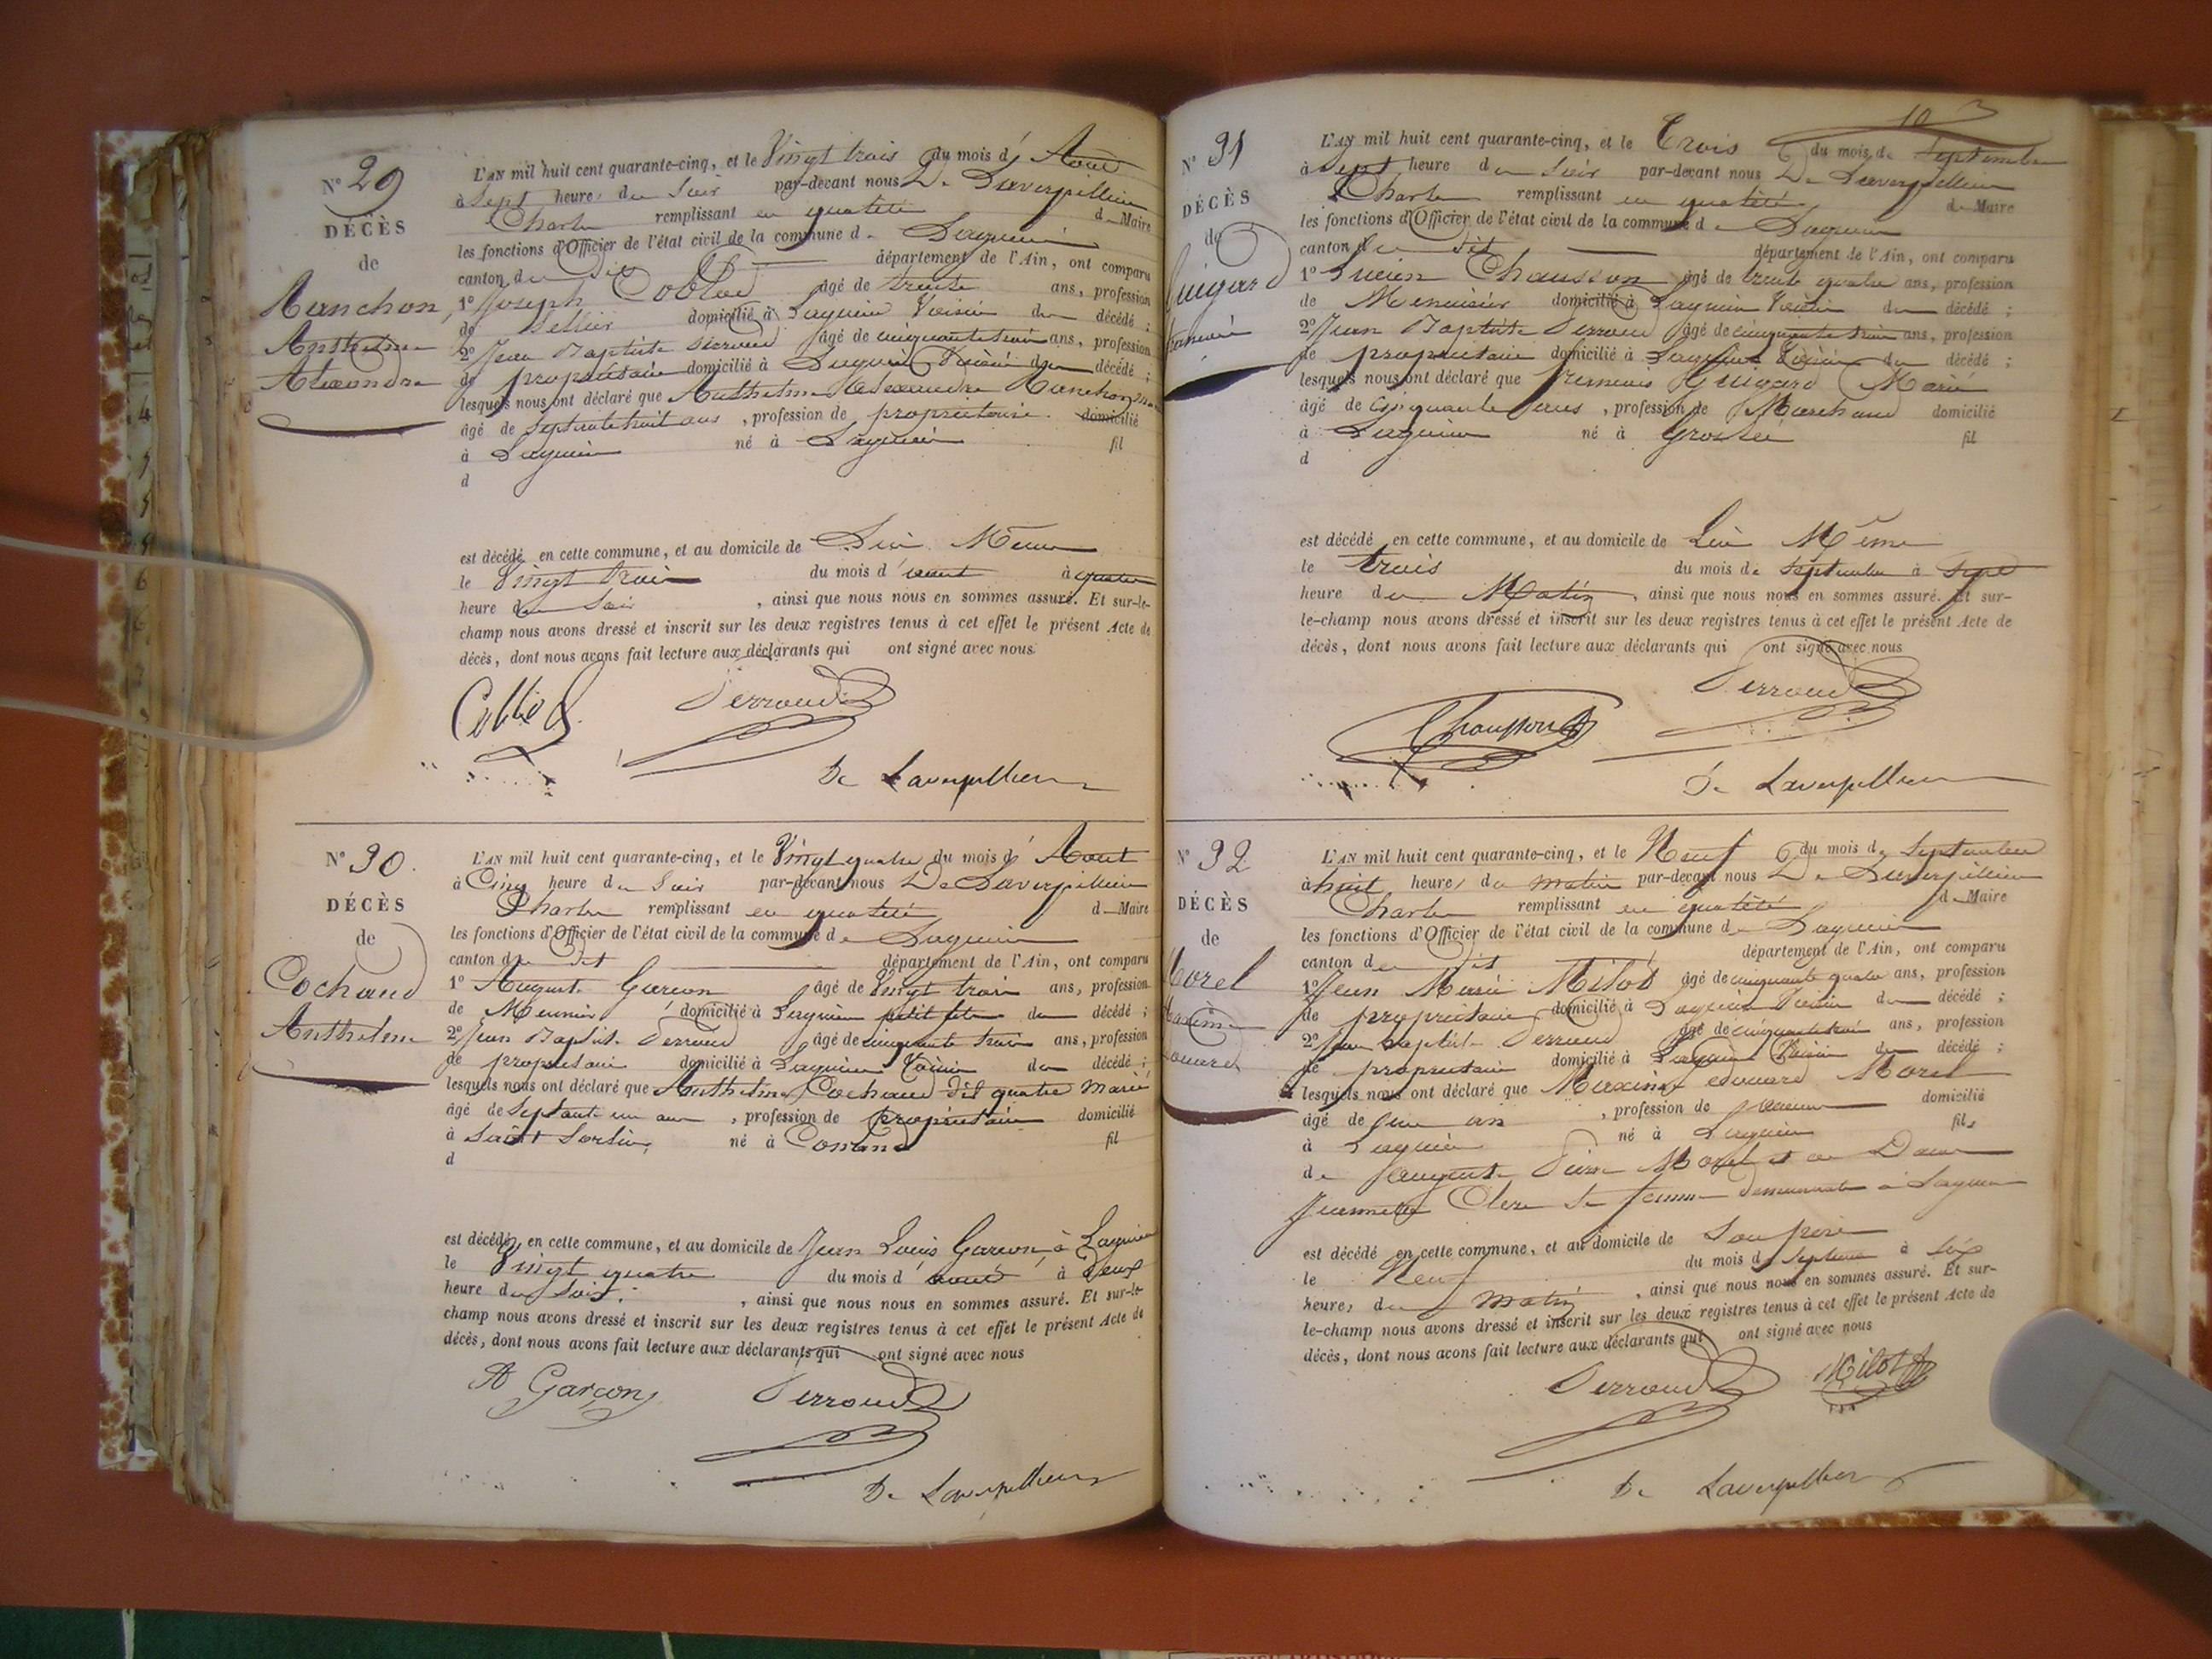 Nº 29
DÉCÈS
de
Manchon,
Anthelme
Alexandre
L'AN mil huit cent quarante-cinq, et le Vingt trois du mois d' Aout
à Sept heure du Soir par-devant nous De Laverpillière
Charles remplissant en qualité de Maire
les fonctions d'Officier de l'état civil de la commune de Lagnieu
canton du dit département de l'Ain, ont comparu
1º Joseph âgé de trente ans, profession
de Sellier domicilié à Lagnieu Voisin du décédé ;
2º Jean Baptiste Perroud âgé de cinquante trois ans, profession
de propriétaire domicilié à Lagnieu Voisin du décédé ;
lesquels nous ont déclaré que Anthelme Alexandre Manchon
âgé de Septante huit ans, profession de propriétaire domicilié
à Lagnieu né à Lagnieu fil
d
est décédé en cette commune, et au domicile de Lui Même
le Vingt trois du mois d'aout à quatre
heure du Soir, ainsi que nous nous en sommes assuré. Et sur-le-
champ nous avons dressé et inscrit sur les deux registres tenus à cet effet le présent Acte de
décès, dont nous avons fait lecture aux déclarants qui ont signé avec nous.
Perroud
De Laverpillière
Nº 30.
DÉCÈS
de
Cochand
Anthelme
L'AN mil huit cent quarante-cinq, et le Vingt quatre du mois d' Aout
à Cinq heure du Soir par-devant nous De Laverpillière
Charles remplissant en qualité de Maire
les fonctions d'Officier de l'état civil de la commune de Lagnieu
canton du dit département de l'Ain, ont comparu
1º August. Garcon âgé de Vingt trois ans, profession
de Meunier domicilié à Lagnieu petit fils du décédé ;
2º Jean Baptist. Perroud âgé de cinquante trois ans, profession
de propriétaire domicilié à Lagnieu Voisin du décédé ;
lesquels nous ont déclaré que Anthelme Cochand dit quatre Marié
âgé de Septante un ans, profession de propriétaire domicilié
à Saint Sorlin, né à Conand fil
d
est décédé en cette commune, et au domicile de Jean Louis Garcon, à Lagnieu
le Vingt quatre du mois d' aout à deux
heure du Soir, ainsi que nous nous en sommes assuré. Et sur-le-
champ nous avons dressé et inscrit sur les deux registres tenus à cet effet le présent Acte de
décès, dont nous avons fait lecture aux déclarants qui ont signé avec nous
A Garçon Perroud
De Laverpillière
Nº 31
DÉCÈS
de
Guigard
L'AN mil huit cent quarante-cinq, et le Trois du mois de Septembre
à Sept heure du Soir par-devant nous De Laverpillière
Charles remplissant en qualité de Maire
les fonctions d'Officier de l'état civil de la commune de Lagnieu
canton du dit département de l'Ain, ont comparu
1º Lucien Chausson âgé de trente quatre ans, profession
de Menuisier domicilié à Lagnieu Voisin du décédé ;
2º Jean Baptiste Perroud âgé de cinquante trois ans, profession
de propriétaire domicilié à Lagnieu Voisin du décédé ;
lesquels nous ont déclaré que Guigard Marié
âgé de Cinquante ans, profession de Marchand domicilié
à Lagnieu né à Groslée fil
d
est décédé en cette commune, et au domicile de Lui Même
le trois du mois de Septembre à Sept
heure du Matin, ainsi que nous nous en sommes assuré. Et sur-
le-champ nous avons dressé et inscrit sur les deux registres tenus à cet effet le présent Acte de
décès, dont nous avons fait lecture aux déclarants qui ont signé avec nous
Perroud
Chausson
De Laverpillière
Nº 32
DÉCÈS
de
Morel
Maxime
Edouard
L'AN mil huit cent quarante-cinq, et le Neuf du mois de Septembre
à huit heures du matin par-devant nous De Laverpillière
Charles remplissant en qualité de Maire
les fonctions d'Officier de l'état civil de la commune de Lagnieu
canton du dit département de l'Ain, ont comparu
1º Jean Marie Milot âgé de cinquante quatre ans, profession
de propriétaire domicilié à Lagnieu Voisin du décédé ;
2º Jean Baptist. Perroud âgé de cinquante trois ans, profession
de propriétaire domicilié à Lagnieu Voisin du décédé ;
lesquels nous ont déclaré que Maxime edouard Morel
âgé de un an, profession de domicilié
à Lagnieu né à Lagnieu fils
de Morel et de Dame
Jeannette Clerc Sa femme demeurant à Lagnieu
est décédé en cette commune, et au domicile de Son père
le Neuf du mois de Septembre à Six
heures du matin, ainsi que nous nous en sommes assuré. Et sur-
le-champ nous avons dressé et inscrit sur les deux registres tenus à cet effet le présent Acte de
décès, dont nous avons fait lecture aux déclarants qui ont signé avec nous
Perroud Milot
De Laverpillière